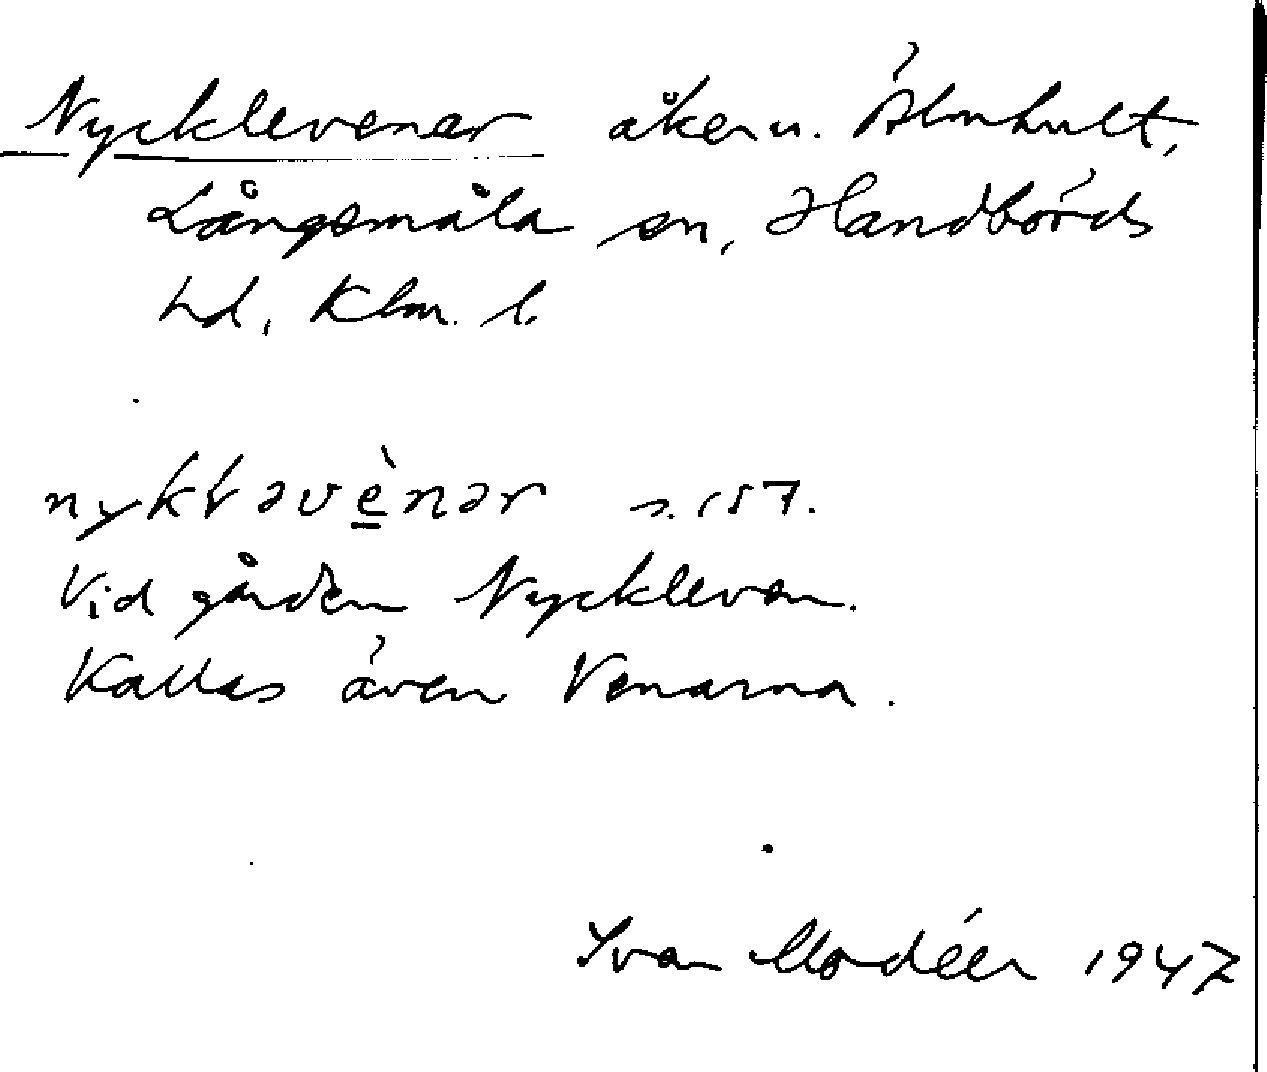 Nycklevenar åker u. Älmhult,
Långsmåla sn, Handbörds
hd, Klm. l.
nykləvènər s. 157.
Vid gården Nyckleven.
Kallas även Venarna.
Ivar Modéer 1947